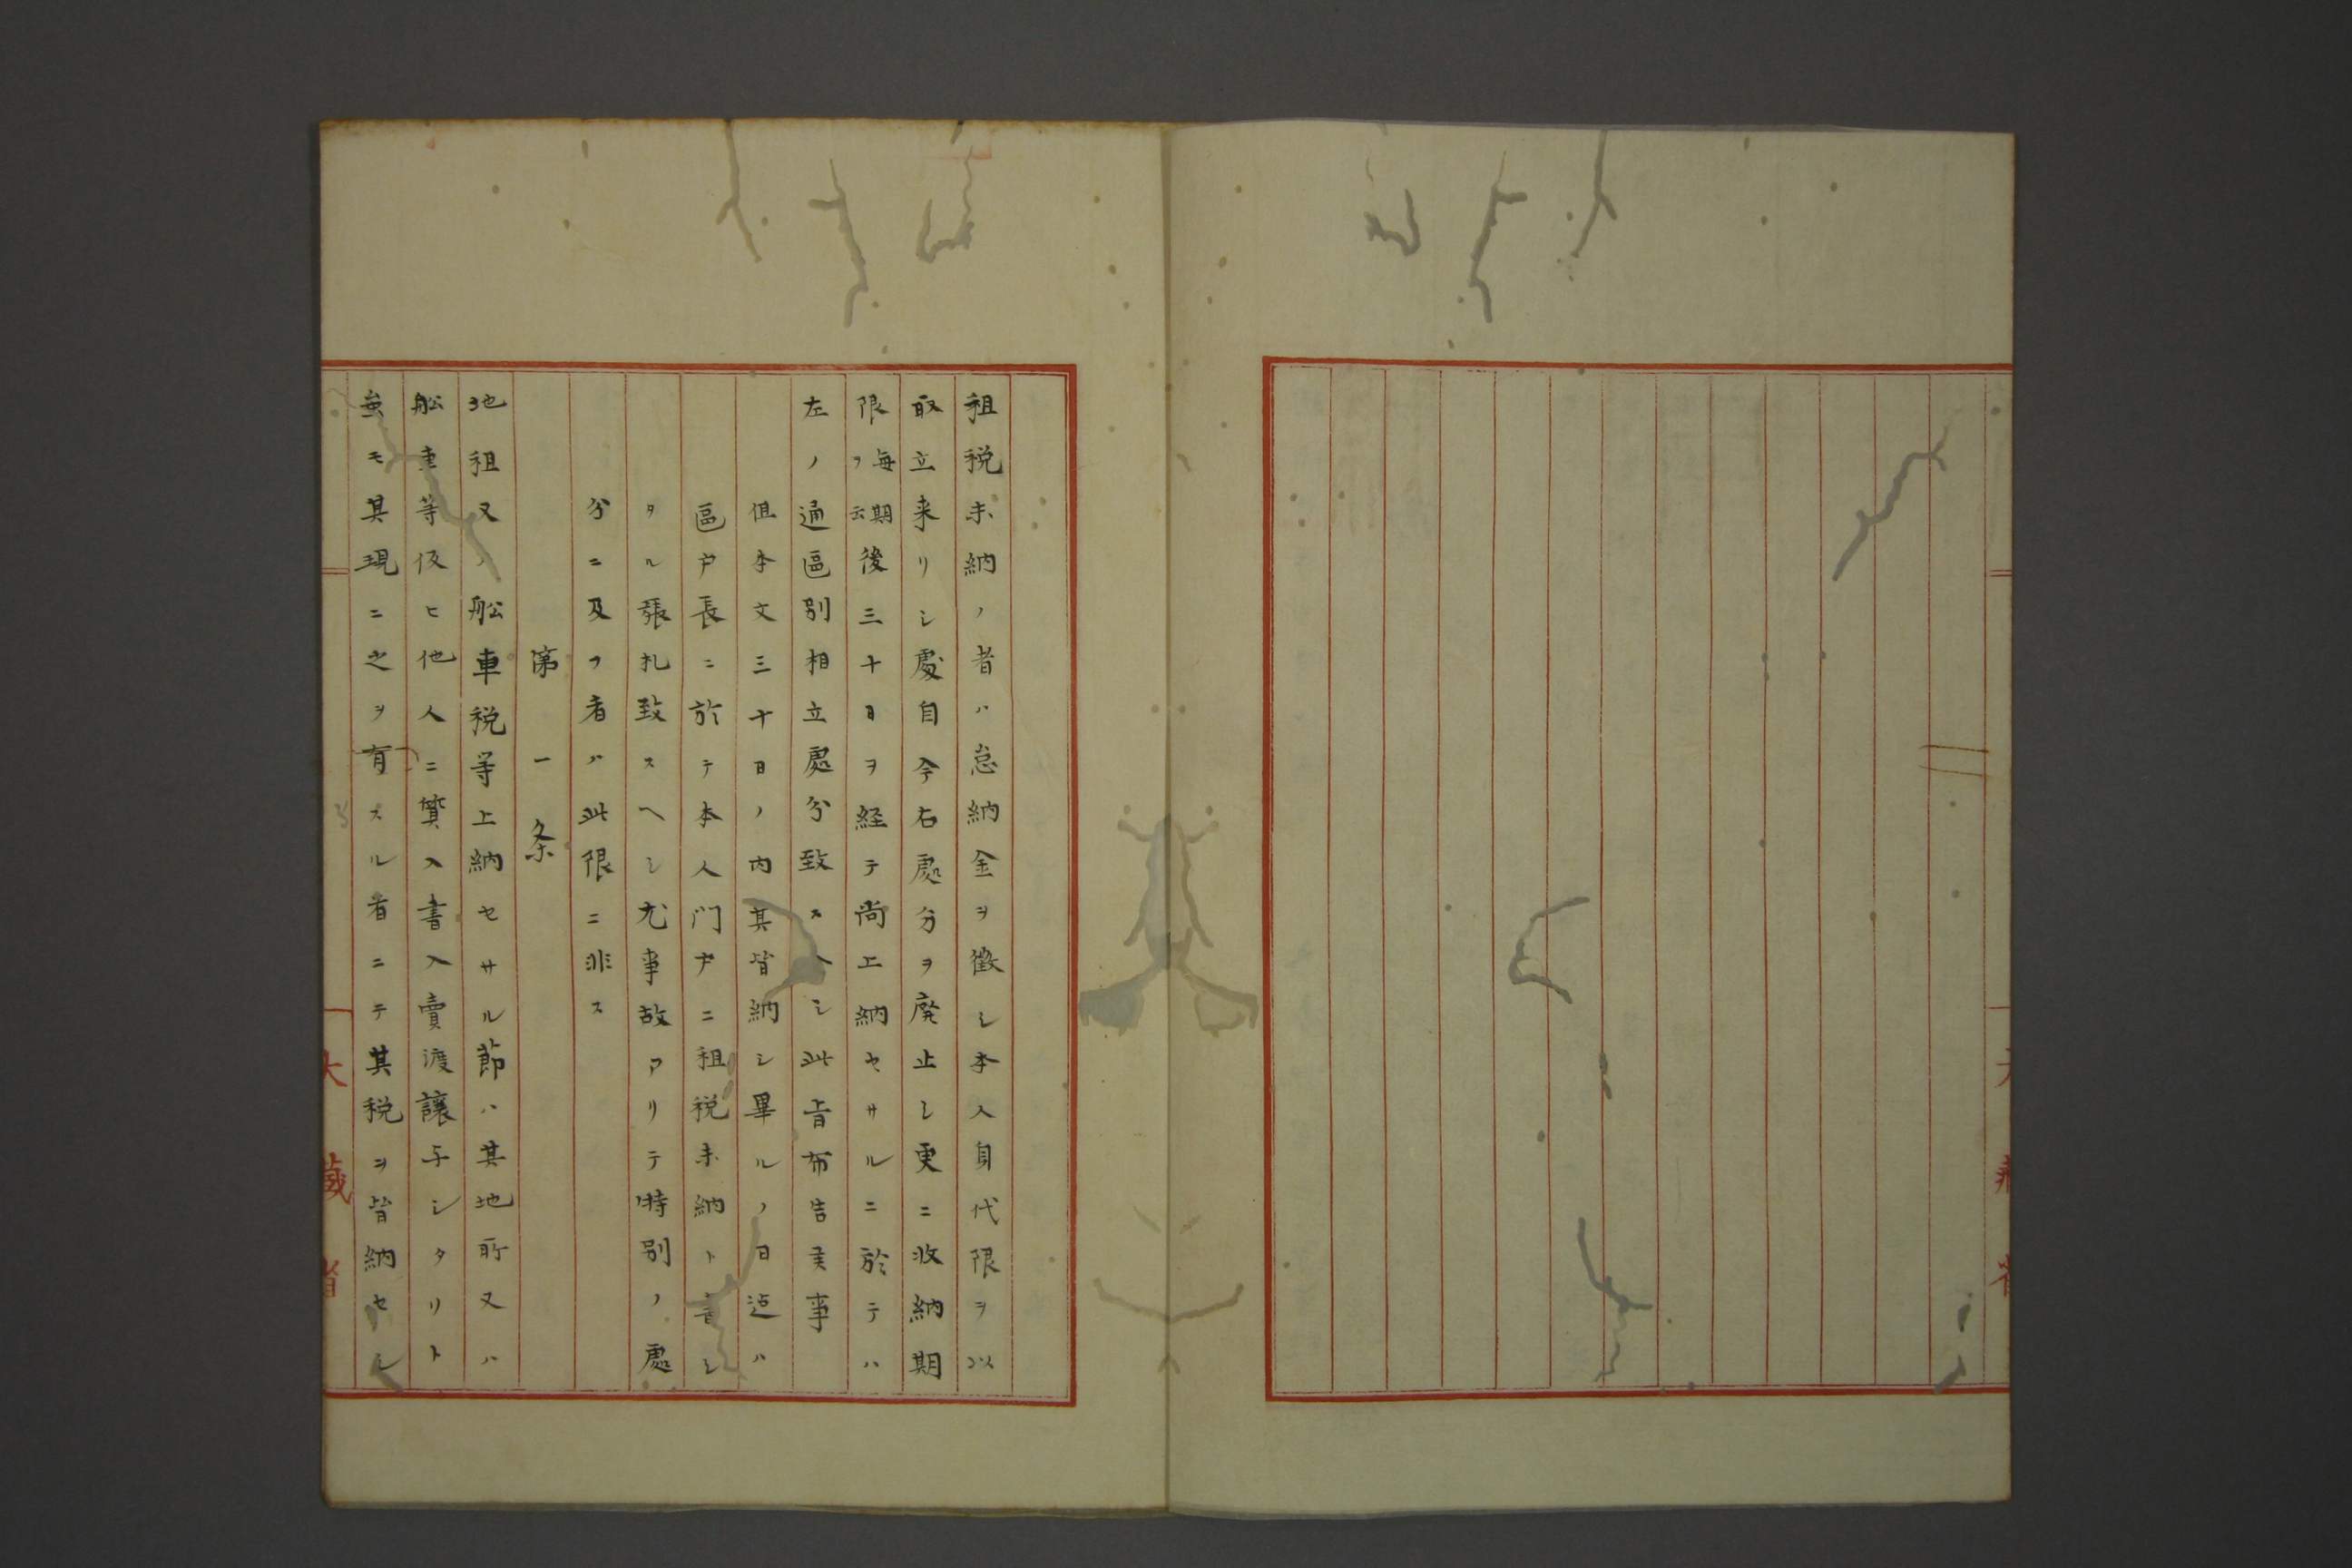 租税未納ノ者ハ怠納金ヲ徴シ本人身代限ヲ以
取立来リシ處自今右處分ヲ廃止シ更ニ收納期
限毎期ヲ云後三十日ヲ経テ尚上納セサルニ於テハ
左ノ通區別相立處分致スヘシ此旨布告矦事
但本文三十日ノ内其皆納シ畢ルノ日迠ハ
區戸長ニ於テ本人門戸ニ租税未納ト書シ
タル張札致スヘシ尤事故アリテ特別ノ處
分ニ及フ者ハ此限ニ非ス
第一条
地租又ハ船車税等上納セサル節ハ其地所又ハ
舩車等仮ヒ他人ニ質入書入賣渡譲与シタリト
虽モ其現ニ之ヲ有スル者ニテ其税ヲ皆納セシ
大藏省